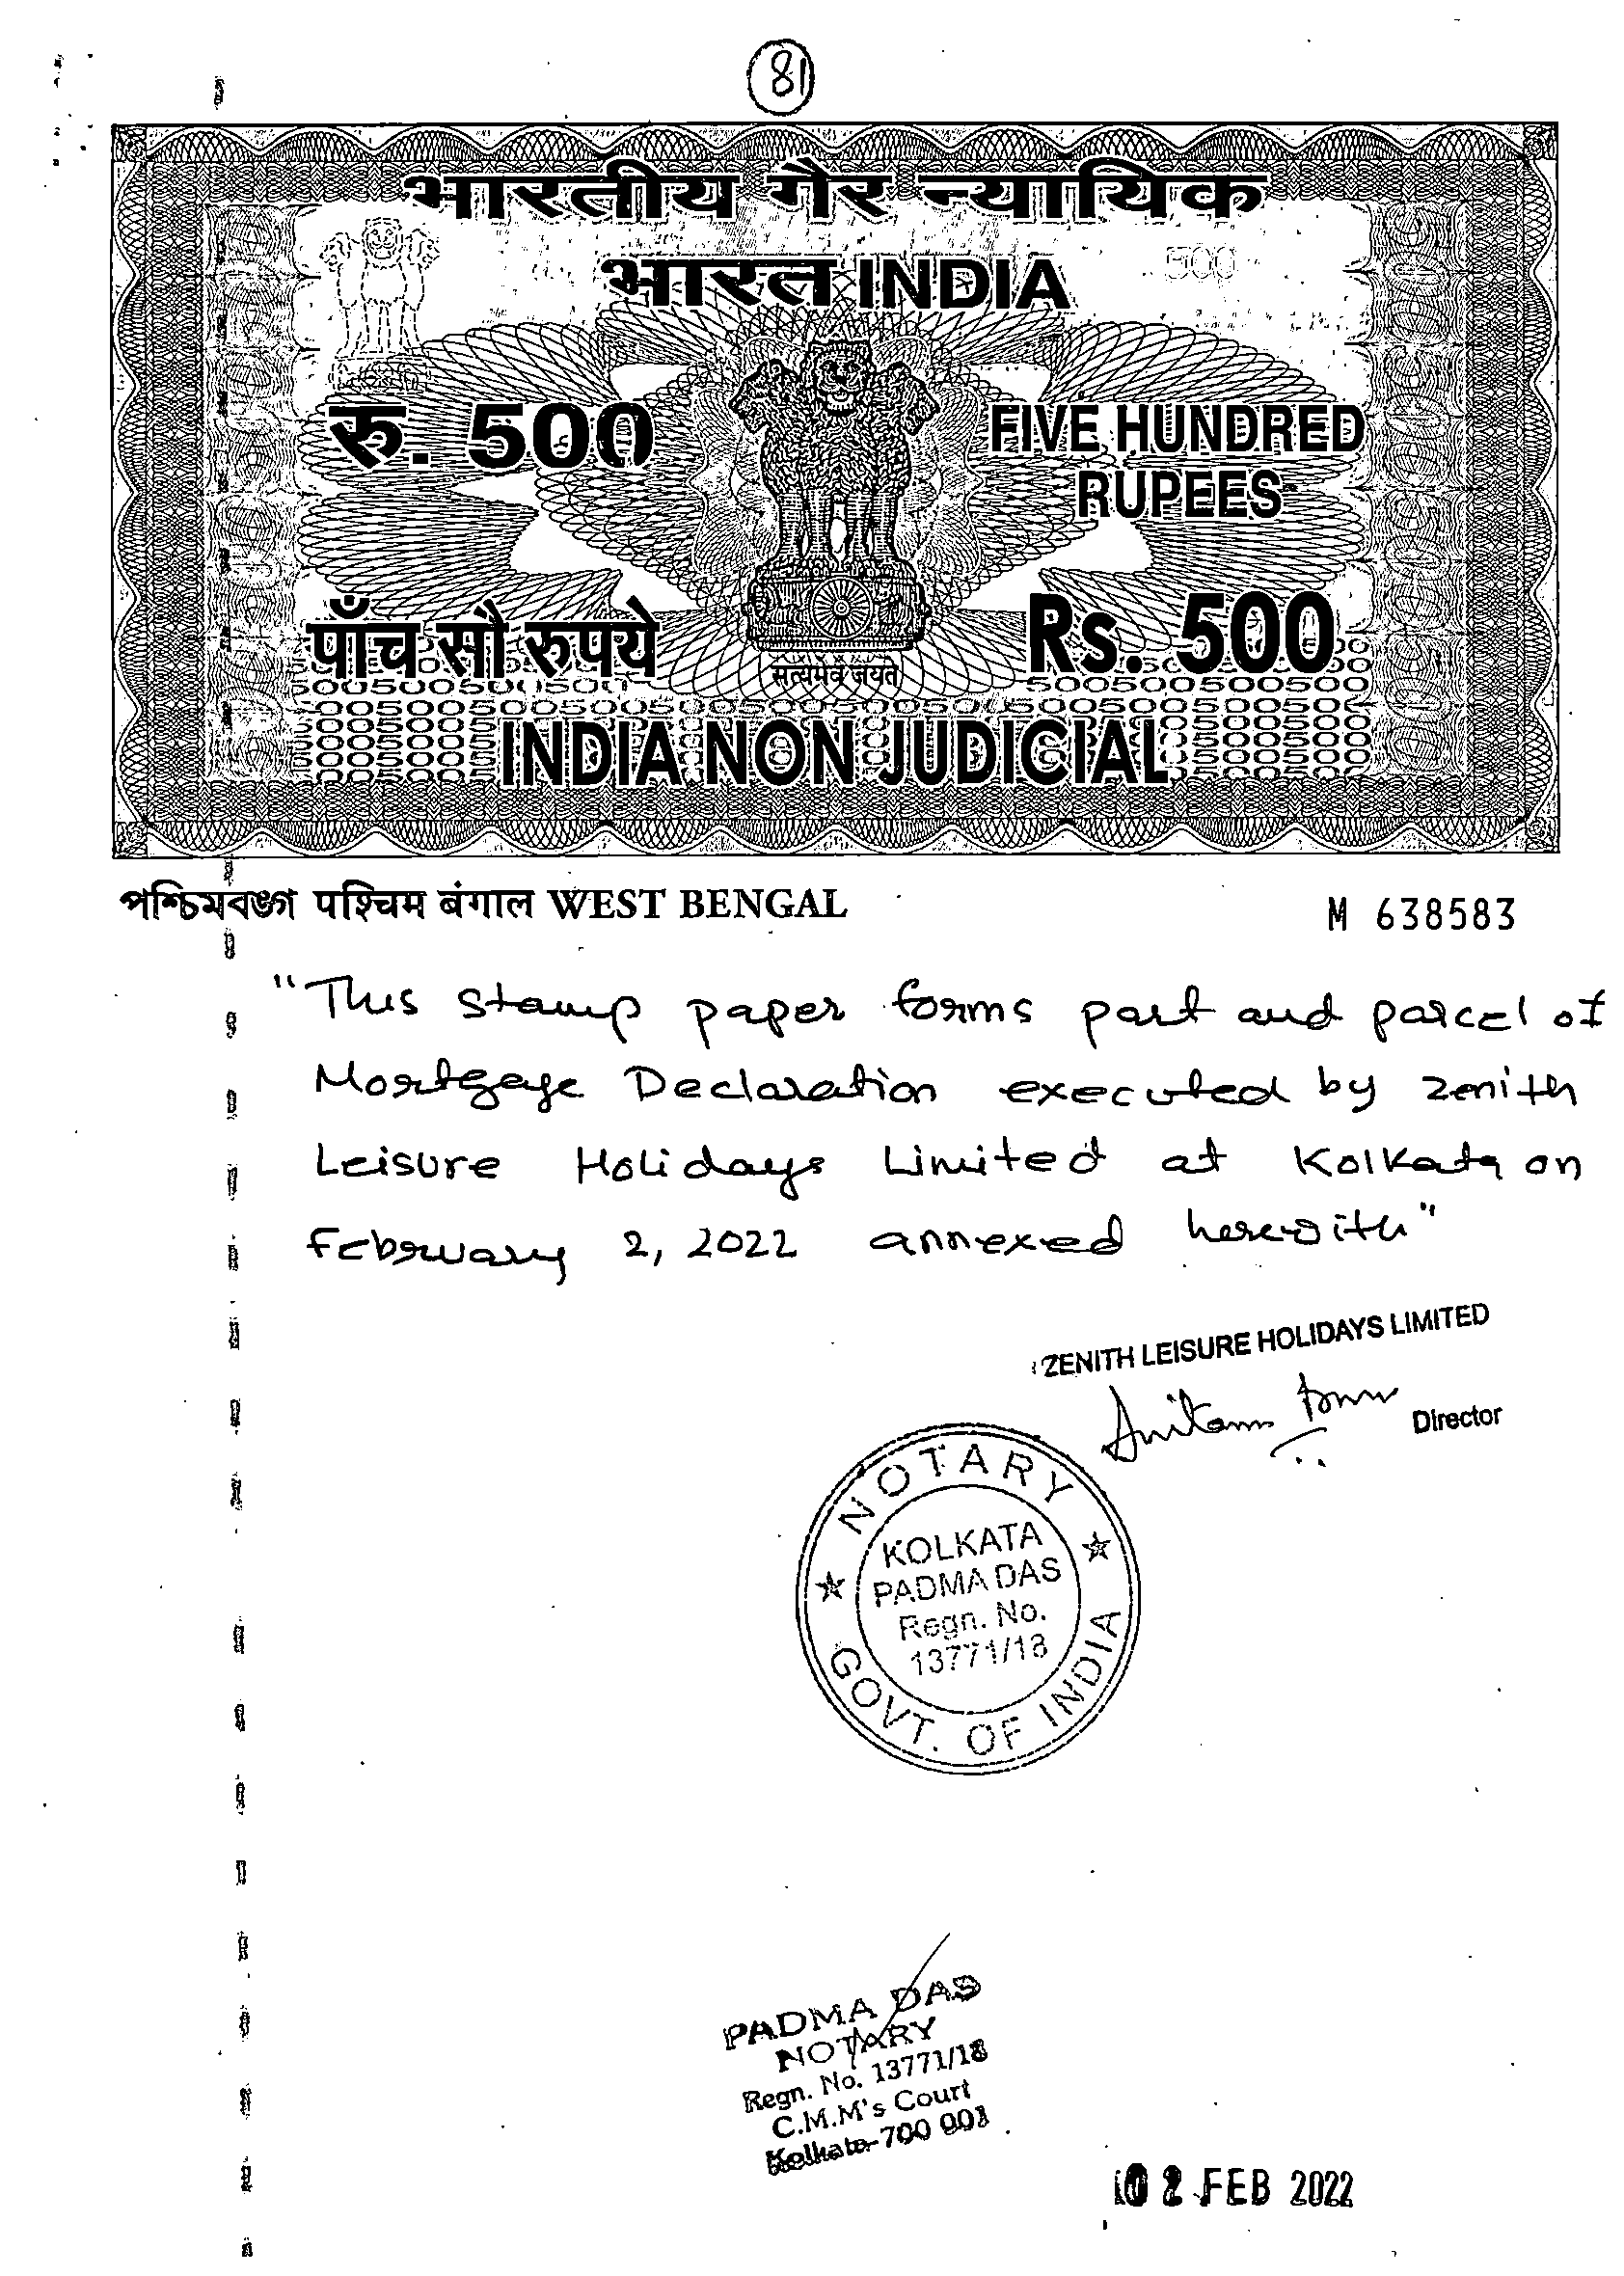 81
भारतीय गैर न्यायिक
भारत INDIA
500
रु. 500
FIVE HUNDRED
RUPEES
पाँच सौ रुपये
Rs. 500
सत्यमेव जयते
INDIA NON JUDICIAL
পশ্চিমবঙ্গ पश्चिम बंगाल WEST BENGAL
M 638583
"This stamp paper forms part and parcel of
Mortgage Declaration executed by Zenith
Leisure Holidays Limited at Kolkata on
February 2, 2022 annexed herewith"
ZENITH LEISURE HOLIDAYS LIMITED
Director
NOTARY
KOLKATA
PADMA DAS
Regn. No.
13771/18
GOVT. OF INDIA
PADMA DAS
NOTARY
Regn. No. 13771/18
C.M.M's Court
Kolkata-700 001
02 FEB 2022